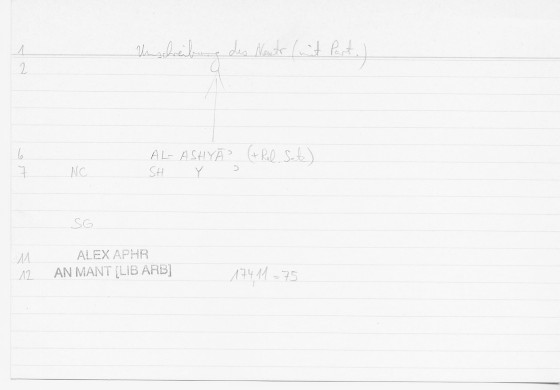 1 Umschreibung des Neutr (mit Part.)
2
6 AL- ASHYĀʾ (+Rel. Satz)
7 NC SH Y ʾ
SG
11 ALEX APHR
12 AN MANT [LIB ARB] 174,11 = 75